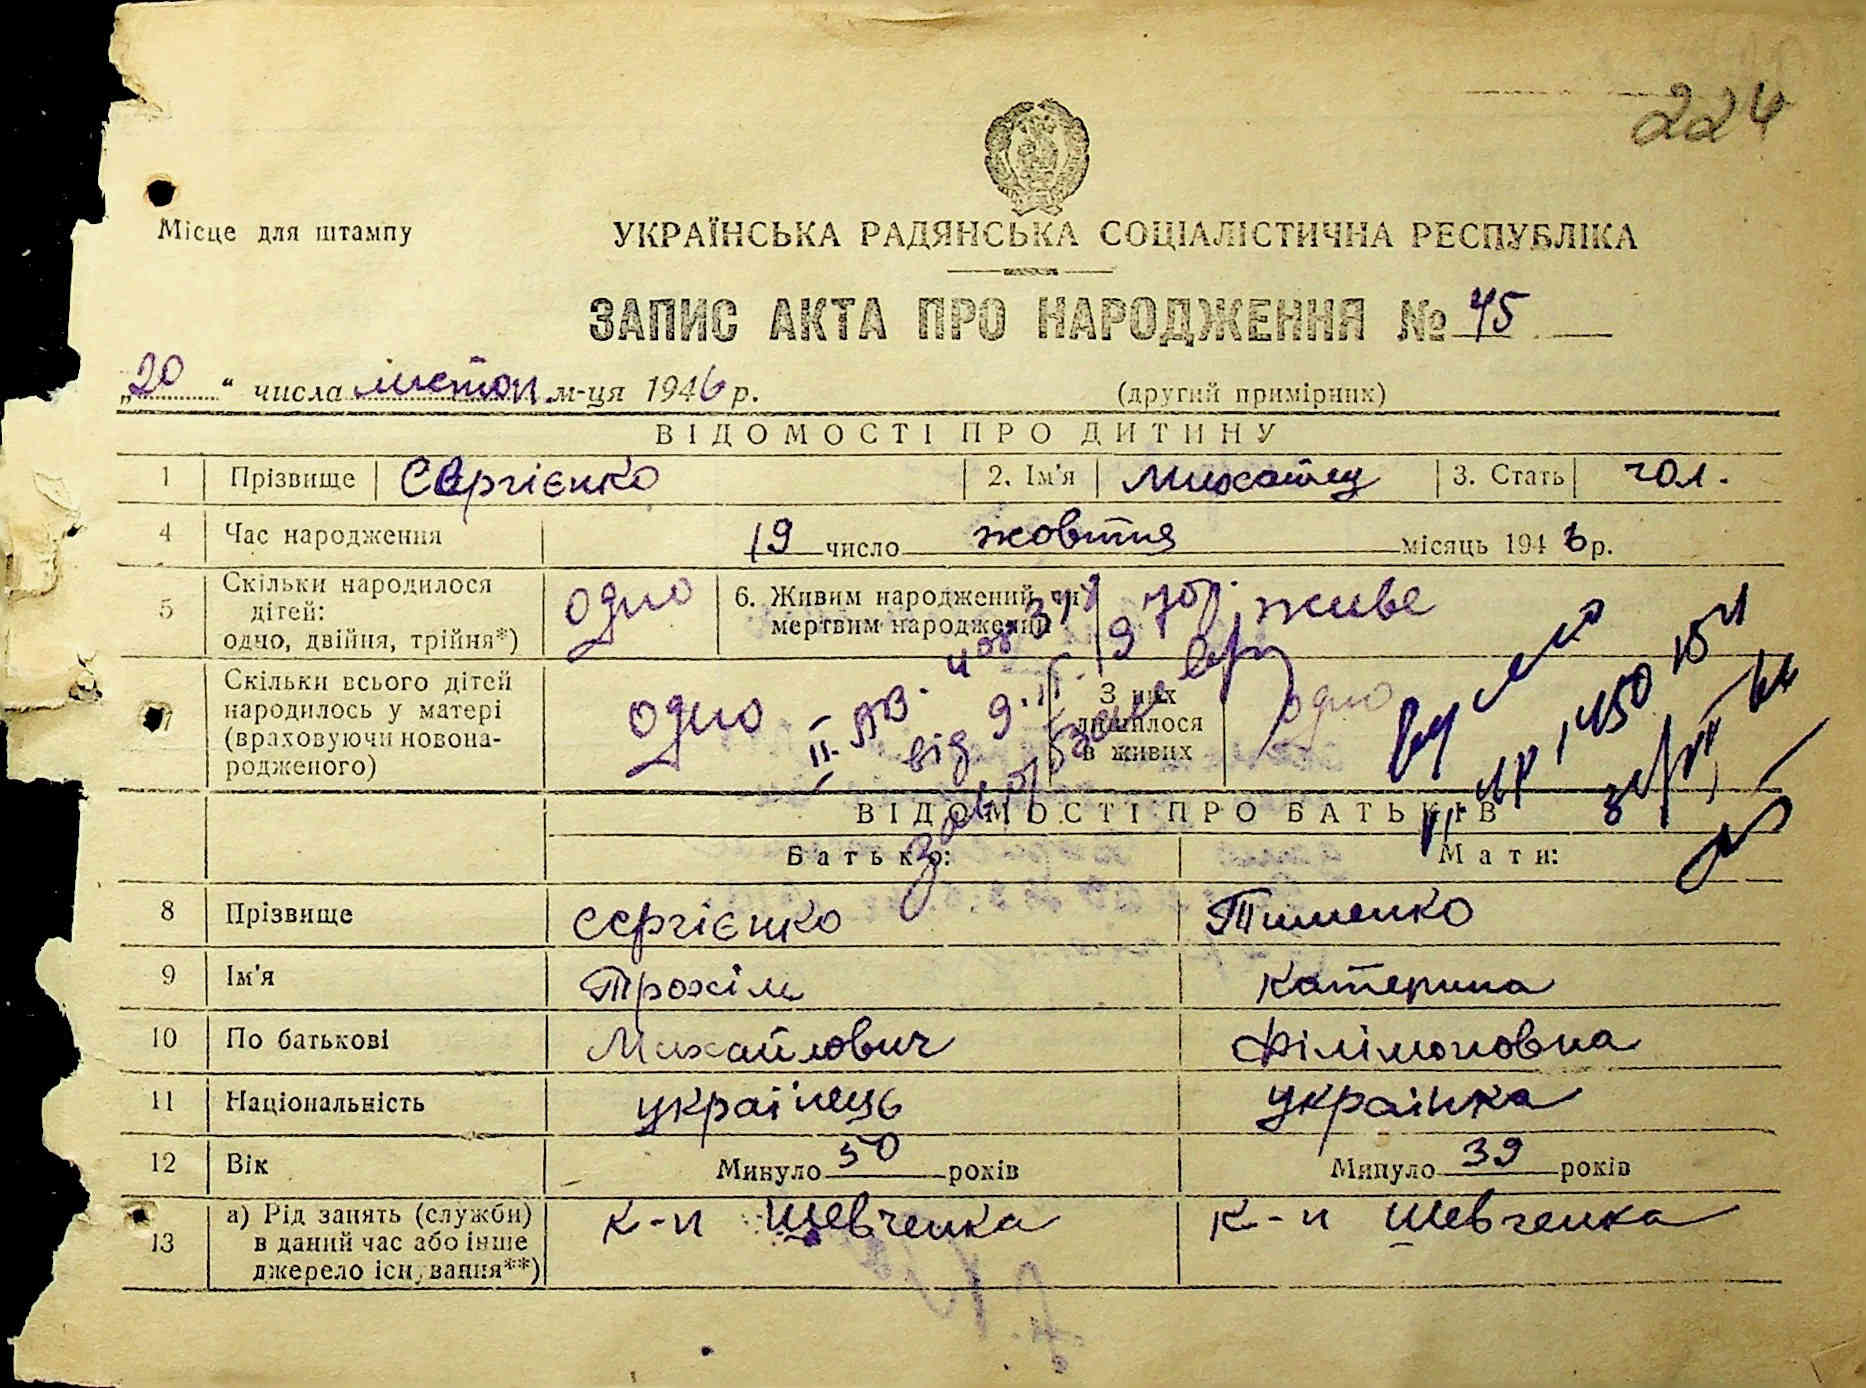 224
Місце для штампу
УКРАЇНСЬКА РАДЯНСЬКА СОЦІАЛІСТИЧНА РЕСПУБЛІКА
ЗАПИС АКТА ПРО НАРОДЖЕННЯ № 45
„20“ числа листоп м-ця 1946 р. (другий примірник)
ВІДОМОСТІ ПРО ДИТИНУ
1 Прізвище Сергієнко 2. Ім'я 3. Стать чол.
4 Час народження 19 число жовтня місяць 194 р.
5 Скільки народилося дітей: одно, двійня, трійня*) одно 6. Живим народжений чи мертвим народжений живе
7 Скільки всього дітей народилось у матері (враховуючи новонародженого) одно З них лишилося в живих одно
ВІДОМОСТІ ПРО БАТЬКІВ
Батько: Мати:
8 Прізвище Сергієнко Тименко
9 Ім'я Трохім Катерина
10 По батькові Михайлович Філімоновна
11 Національність українець українка
12 Вік Минуло 50 років Минуло 39 років
13 а) Рід занять (служби) в даний час або інше джерело існування**) к-п Шевченка к-п Шевченка